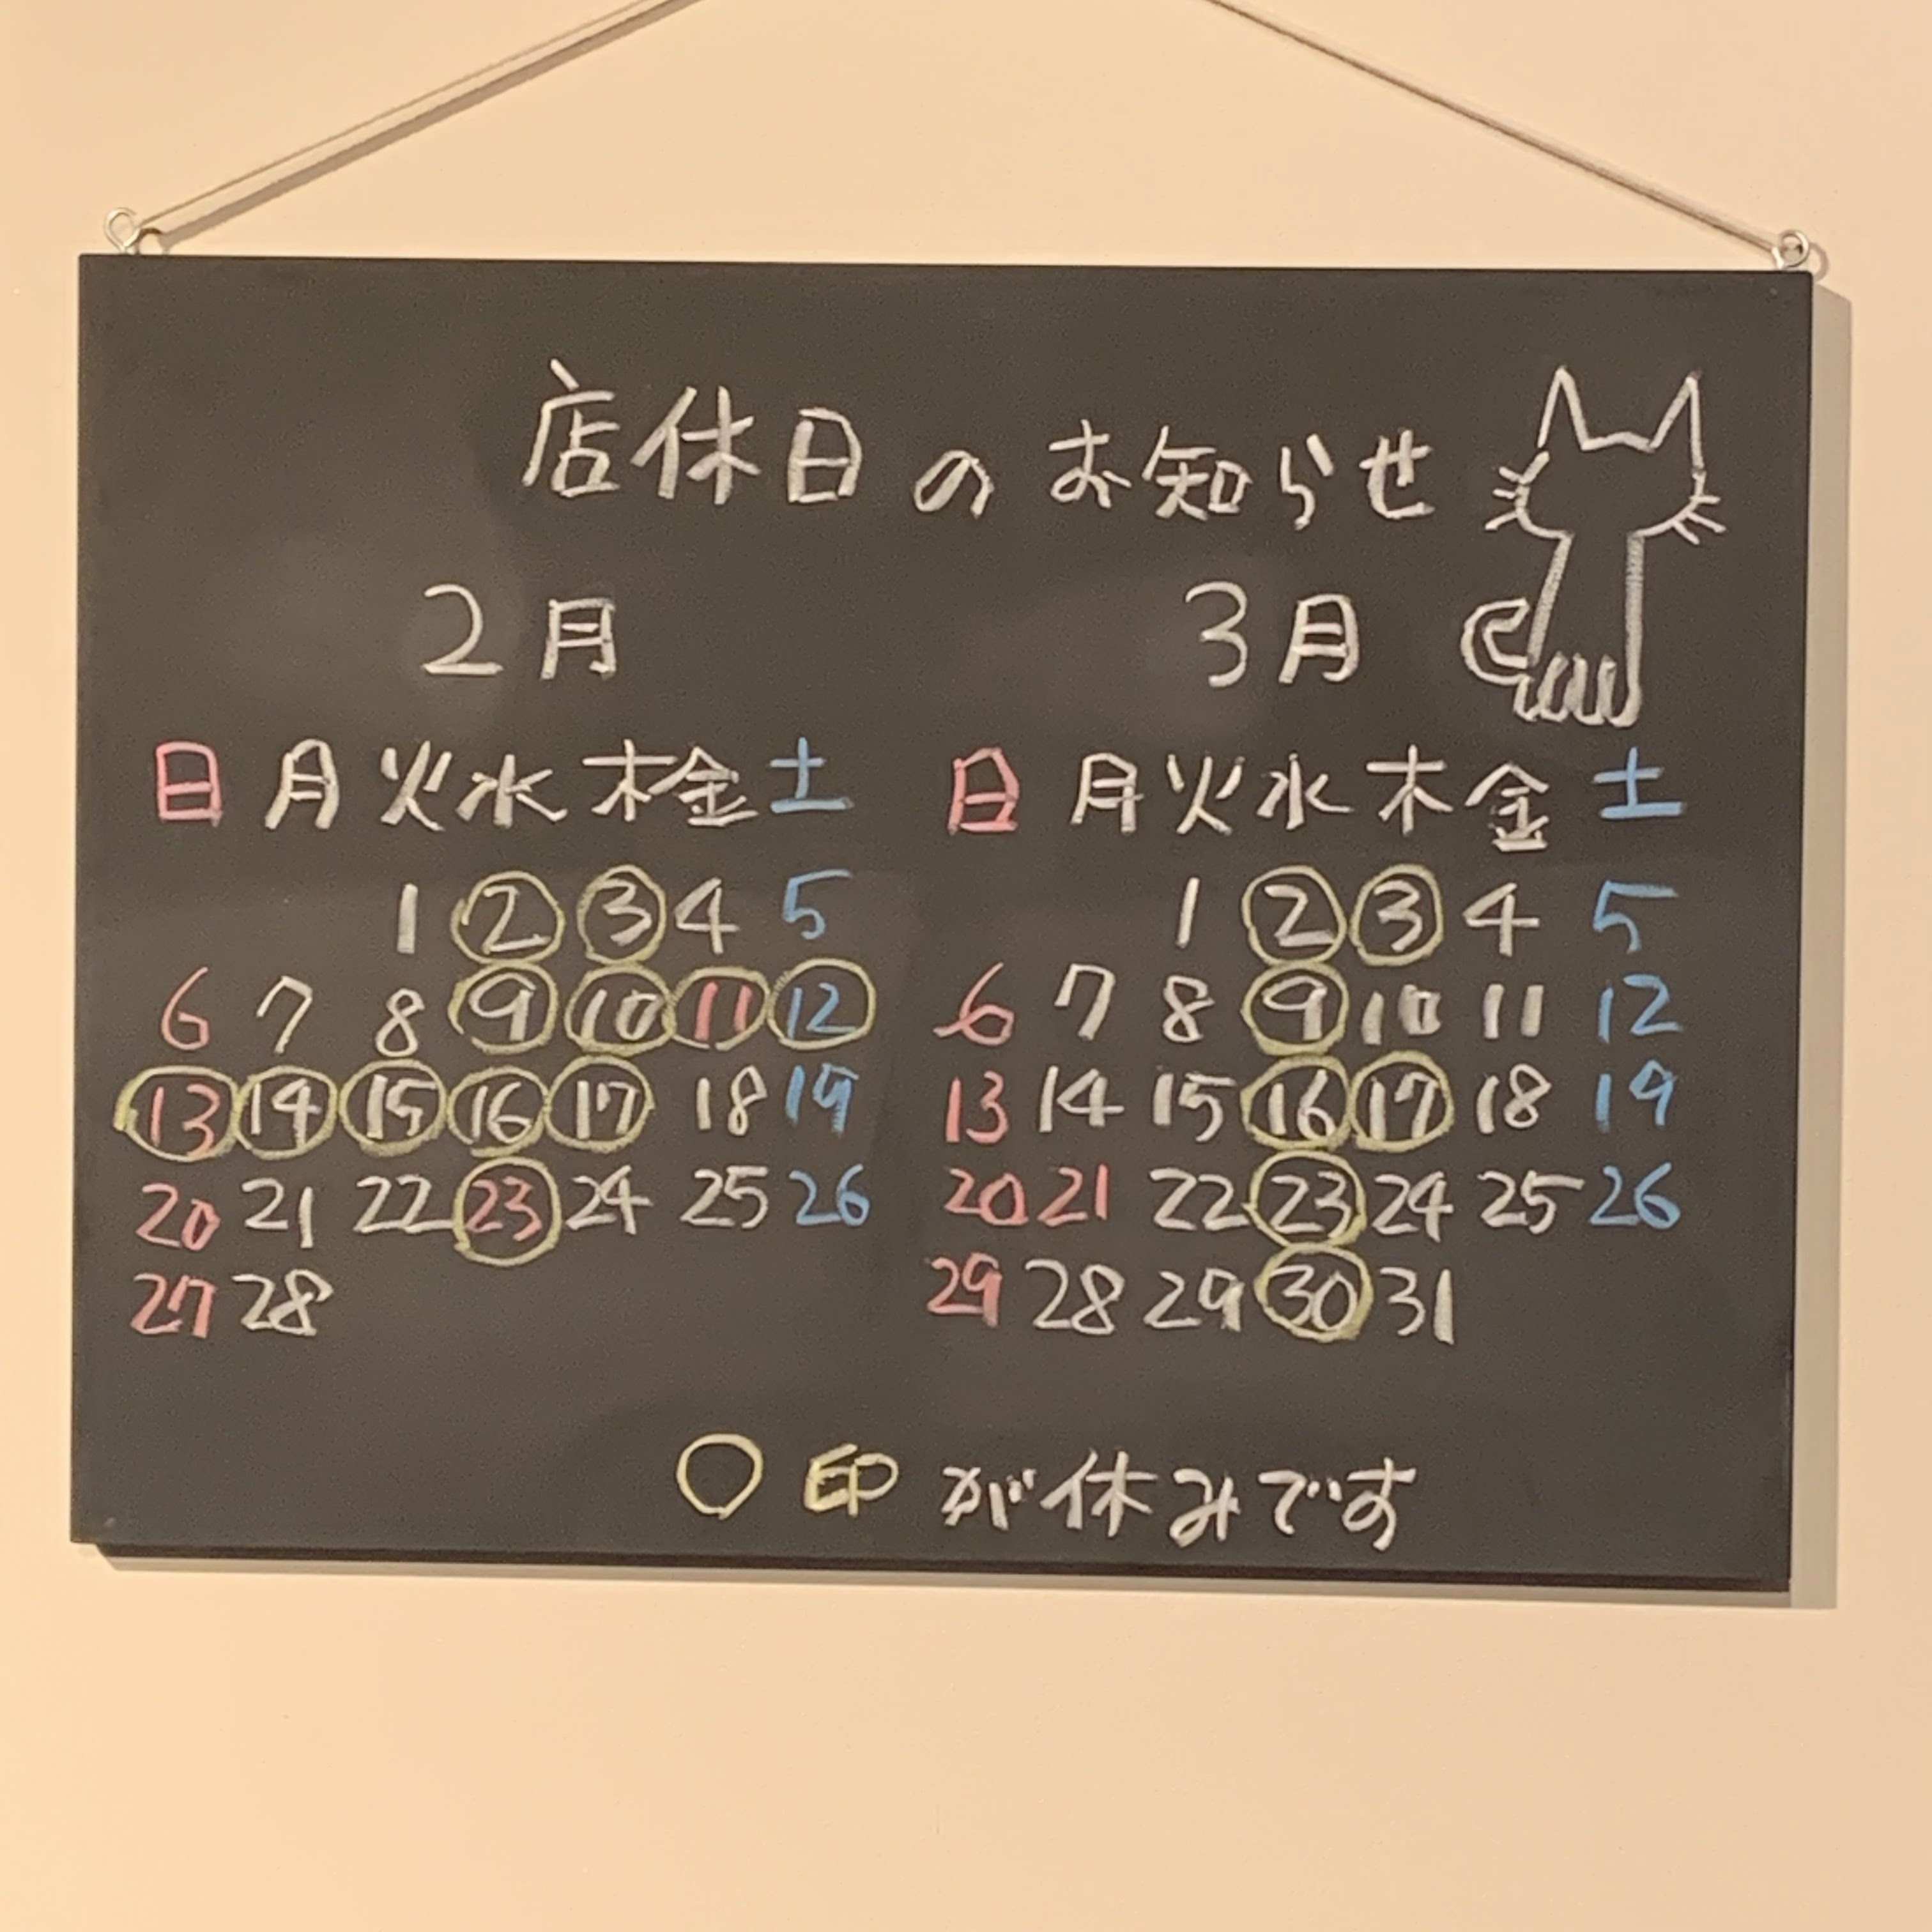 店休日のお知らせ
2月
日 月 火 水 木 金 土
1 2 3 4 5
6 7 8 9 10 11 12
13 14 15 16 17 18 19
20 21 22 23 24 25 26
27 28
3月
日 月 火 水 木 金 土
1 2 3 4 5
6 7 8 9 10 11 12
13 14 15 16 17 18 19
20 21 22 23 24 25 26
29 28 29 30 31
○印が休みです